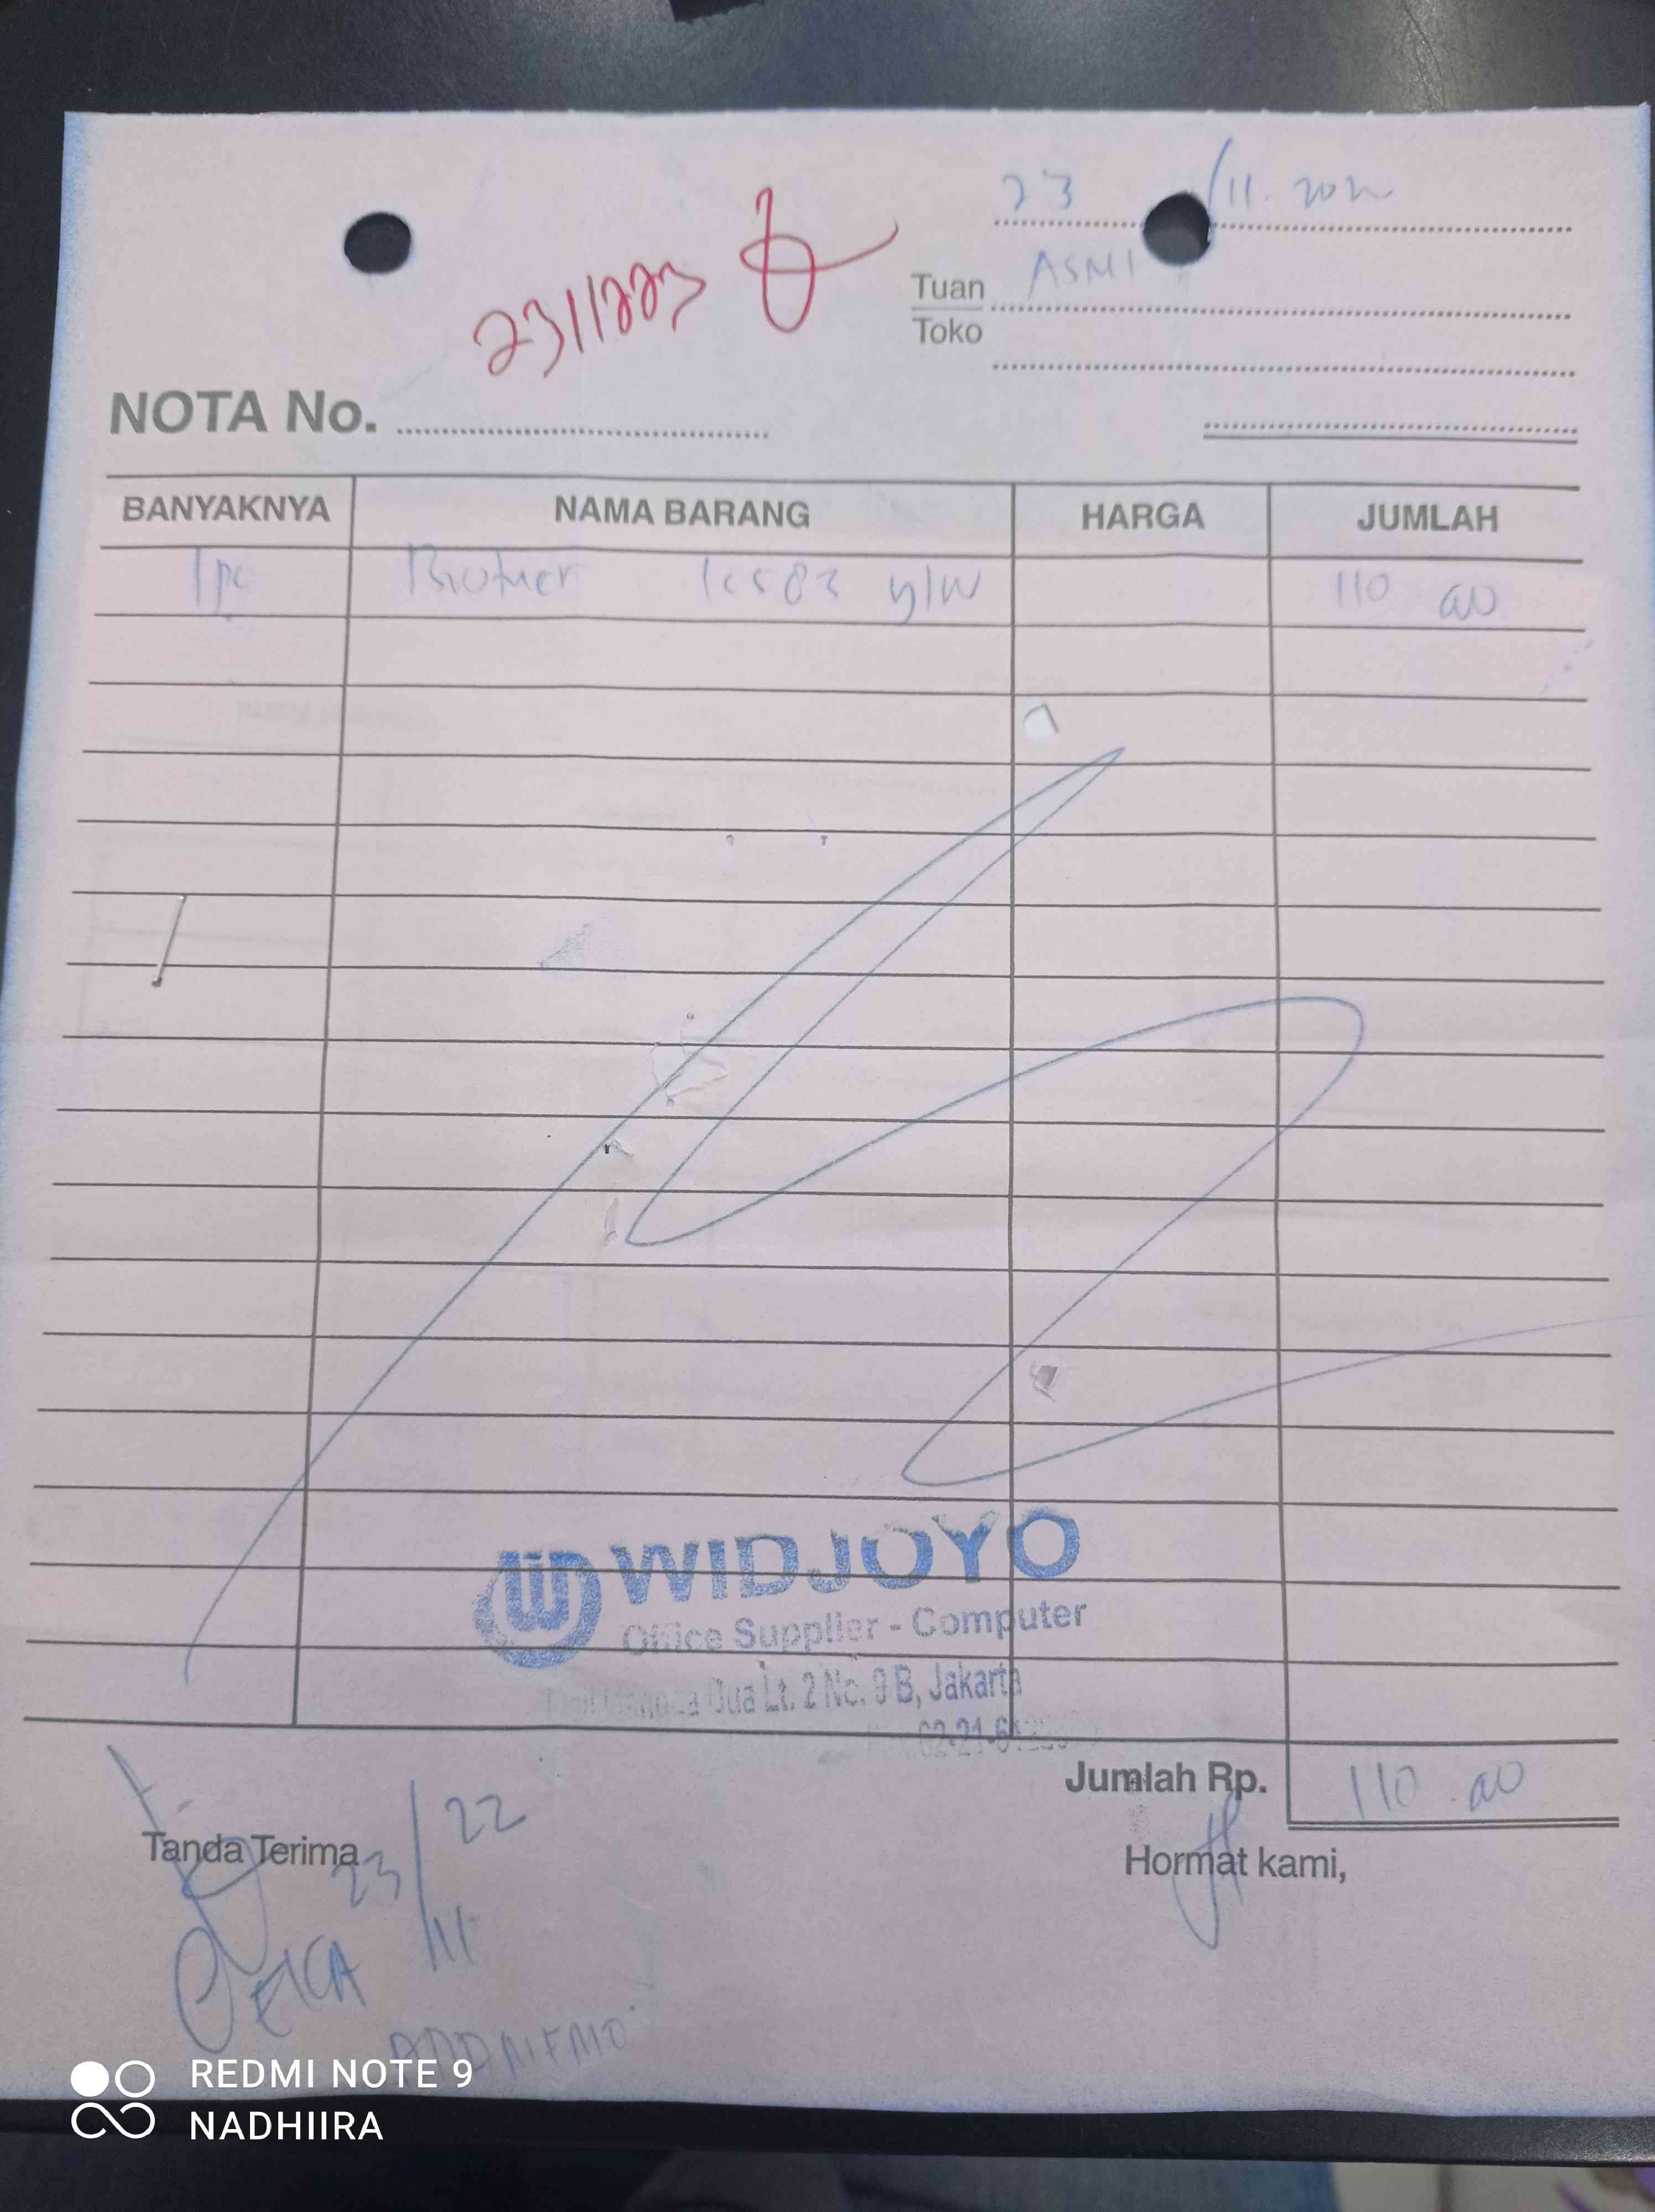 23 /11. 2022
23/1223
Tuan ASMI
Toko
NOTA No.
BANYAKNYA NAMA BARANG HARGA JUMLAH
1 pc Brother lc583 y/w 110 00
WIDJOYO
Office Supplier - Computer
Dua Lt. 2 No. 9 B, Jakarta
Jumlah Rp. 110.00
Tanda Terima 23/11 22
Hormat kami,
REDMI NOTE 9
NADHIIRA